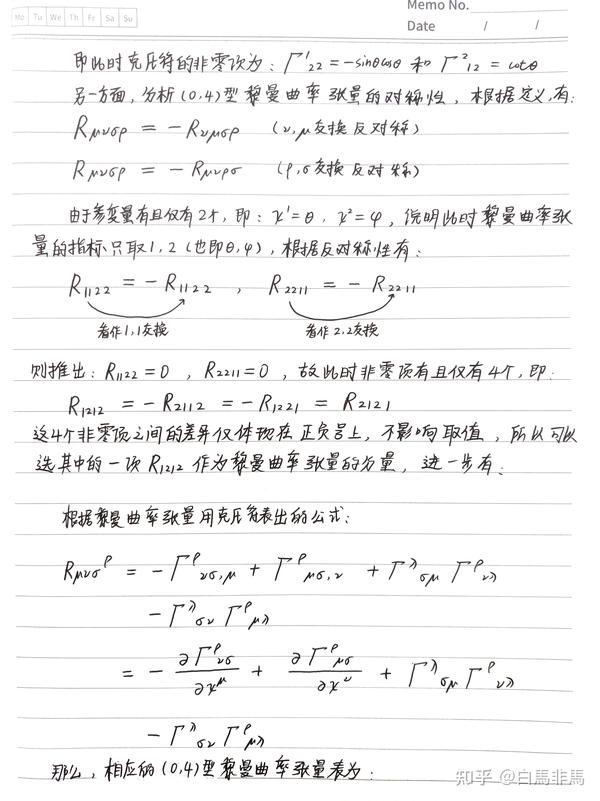 Memo No.
Mo Tu We Th Fr Sa Su
Date / /
即此时克氏符的非零项为: Γ¹₂₂ = -sinθcosθ 和 Γ²₁₂ = cotθ
另一方面, 分析(0,4)型黎曼曲率张量的对称性, 根据定义, 有:
R_{μνσρ} = -R_{νμσρ} (ν,μ交换反对称)
R_{μνσρ} = -R_{μνρσ} (ρ,σ交换反对称)
由于参变量有且仅有2个, 即: x¹=θ, x²=φ, 说明此时黎曼曲率张
量的指标只取1,2 (也即θ,φ), 根据反对称性有:
R₁₁₂₂ = -R₁₁₂₂ , R₂₂₁₁ = -R₂₂₁₁
看作1,1交换 看作2,2交换
则推出: R₁₁₂₂=0 , R₂₂₁₁=0 , 故此时非零项有且仅有4个, 即:
R₁₂₁₂ = -R₂₁₁₂ = -R₁₂₂₁ = R₂₁₂₁
这4个非零项之间的差异仅体现在正负号上, 不影响取值, 所以可以
选其中的一项R₁₂₁₂作为黎曼曲率张量的分量, 进一步有:
根据黎曼曲率张量用克氏符表出的公式:
R_{μνσ}^ρ = -Γ^ρ_{νσ,μ} + Γ^ρ_{μσ,ν} + Γ^λ_{σμ} Γ^ρ_{νλ}
- Γ^λ_{σν} Γ^ρ_{μλ}
= - ∂Γ^ρ_{νσ}/∂x^μ + ∂Γ^ρ_{μσ}/∂x^ν + Γ^λ_{σμ} Γ^ρ_{νλ}
- Γ^λ_{σν} Γ^ρ_{μλ}
那么, 相应的(0,4)型黎曼曲率张量表为:
知乎 @白馬非馬